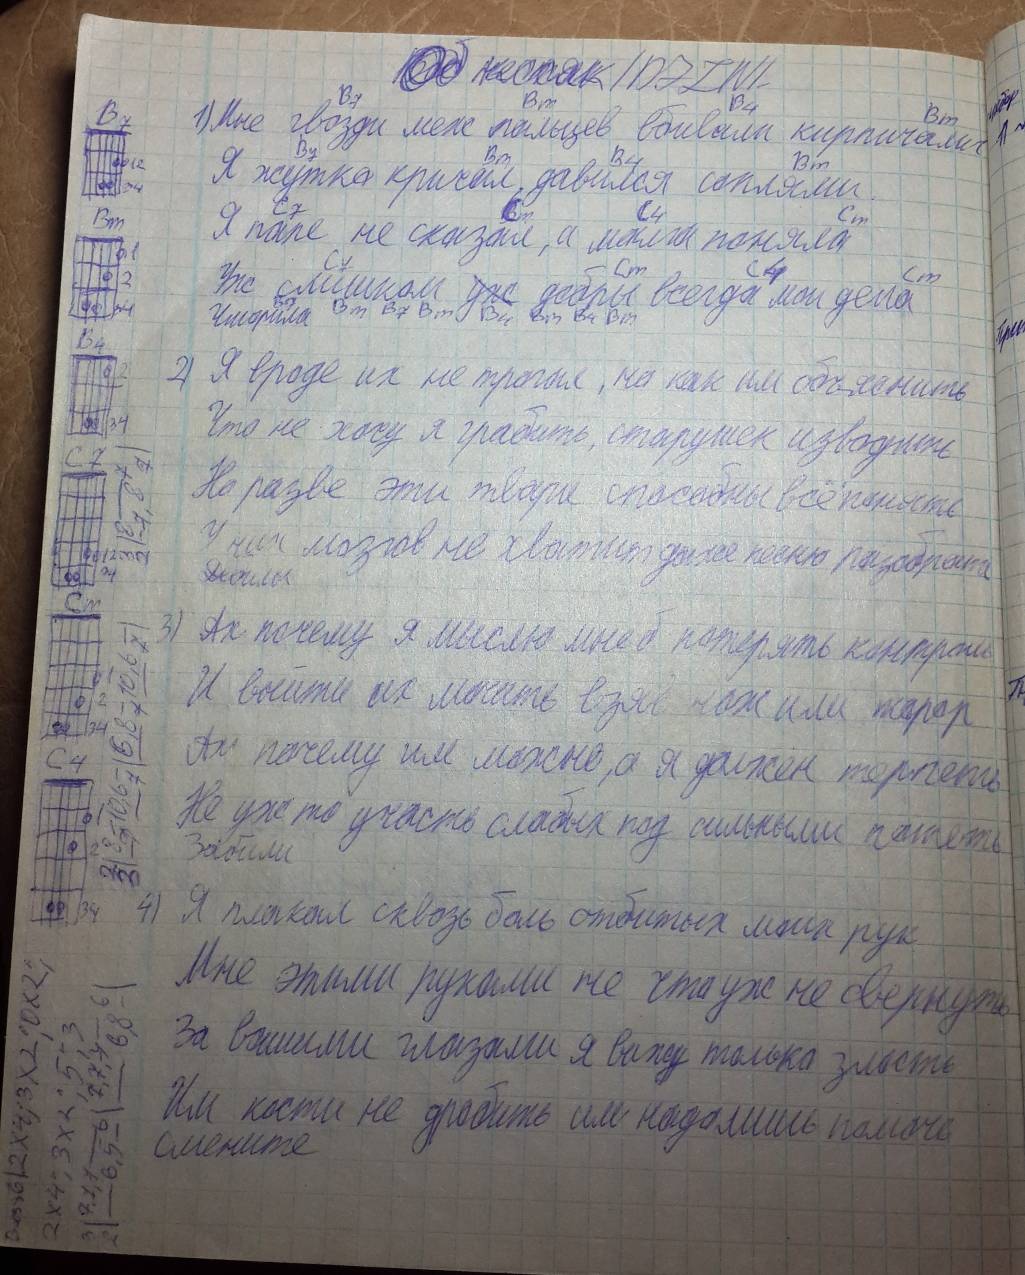 B7 Bm B4 Bm
1) Мне гвозди меж пальцев вбивали кирпичами
B7 Bm B4 Bm
Я жутко кричал, давился соплями.
C7 Cm C4 Cm
Я папе не сказал, а мама поняла
C7 Cm C4 Cm
Уж слишком уж добры всегда мои дела
B7 Bm B7 Bm B4 Bm B4 Bm
2) Я вроде их не трогал, но как им объяснить
Что не хочу я грабить, старушек изводить
Но разве эти твари способны всё понять
У них мозгов не хватит даже песню разобрать
3) Ах почему я мыслю мне б потерять контроль
И выйти их мочить взяв нож или топор
Ах почему им можно, а я должен терпеть
Не уж то участь слабых под сильными потеть
Забили
4) Я плакал сквозь боль отбитых моих рук
Мне этими руками не что уж не свернуть
За вашими глазами я вижу только злость
Им кости не дробить им надо лишь помочь
смените
B7
12
34
Bm
1
2
34
B4
2
34
C7
12
34
Cm
2
34
C4
2
34